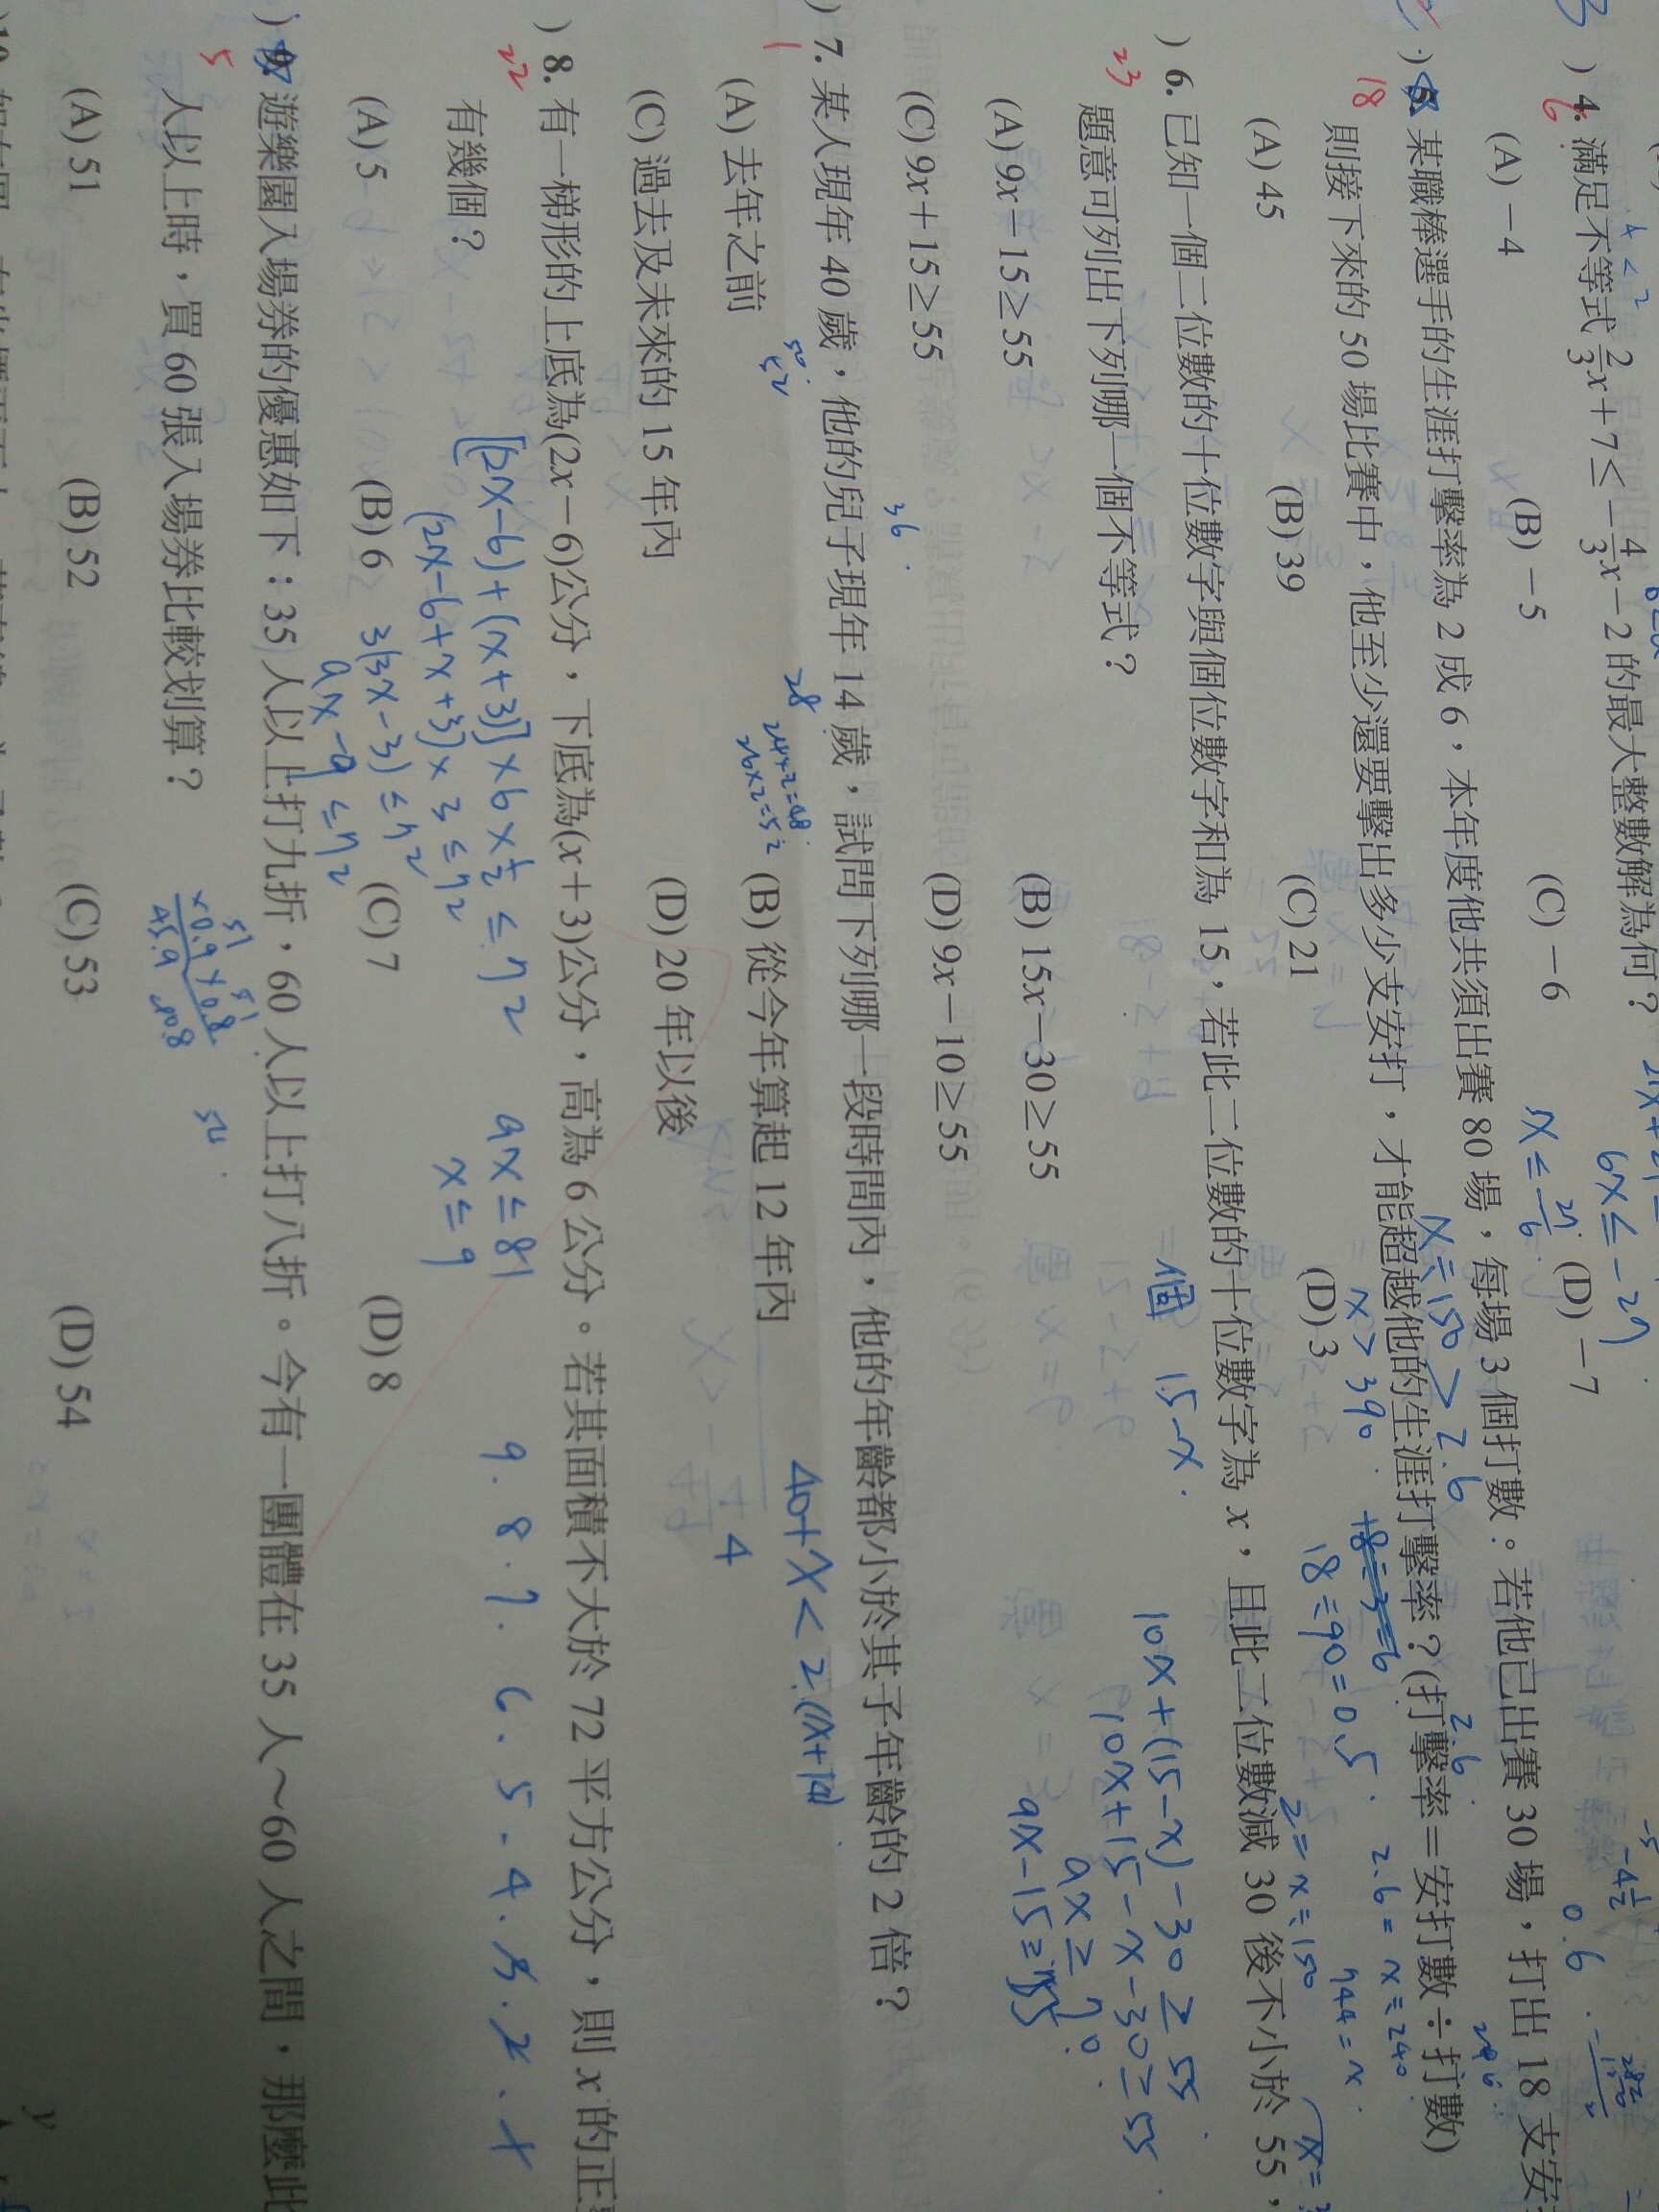 ) 4. 滿足不等式 2/3 x + 7 ≤ − 4/3 x − 2 的最大整數解為何？
6
6x ≤ −27
(A) −4 (B) −5 (C) −6 (D) −7
) 5. 某職棒選手的生涯打擊率為 2 成 6，本年度他共須出賽 80 場，每場 3 個打數。若他已出賽 30 場，打出 18 支安
18
則接下來的 50 場比賽中，他至少還要擊出多少支安打，才能超越他的生涯打擊率？(打擊率＝安打數÷打數)
x ÷ 150 > 2.6
x > 390
18 ÷ 90 = 0.5
2.6 = x ÷ 240
2 = x ÷ 150
(A) 45 (B) 39 (C) 21 (D) 3
) 6. 已知一個二位數的十位數字與個位數字和為 15，若此二位數的十位數字為 x，且此二位數減 30 後不小於 55，
23
題意可列出下列哪一個不等式？
個 15−x
10x+(15−x)−30 ≥ 55
10x+15−x−30 ≥ 55
9x ≥ 70
9x−15 ≥ 55
(A) 9x−15≥55 (B) 15x−30≥55
(C) 9x＋15≥55 (D) 9x−10≥55
36
) 7. 某人現年 40 歲，他的兒子現年 14 歲，試問下列哪一段時間內，他的年齡都小於其子年齡的 2 倍？
1
28
24×2=48
26×2=52
40+x < 2(x+14)
(A) 去年之前 (B) 從今年算起 12 年內
50
52
4
(C) 過去及未來的 15 年內 (D) 20 年以後
) 8. 有一梯形的上底為(2x−6)公分，下底為(x＋3)公分，高為 6 公分。若其面積不大於 72 平方公分，則 x 的正
22
有幾個？
[(2x−6)+(x+3)]×6×½ ≤ 72
(2x−6+x+3)×3 ≤ 72
3(3x−3) ≤ 72
9x−9 ≤ 72
9x ≤ 81
x ≤ 9
9.8.7.6.5.4.3.2.1
(A) 5 (B) 6 (C) 7 (D) 8
) 9. 遊樂園入場券的優惠如下：35 人以上打九折，60 人以上打八折。今有一團體在 35 人～60 人之間，那麼此
5
人以上時，買 60 張入場券比較划算？
51
×0.9
45.9
51
×0.8
40.8
54
(A) 51 (B) 52 (C) 53 (D) 54
y